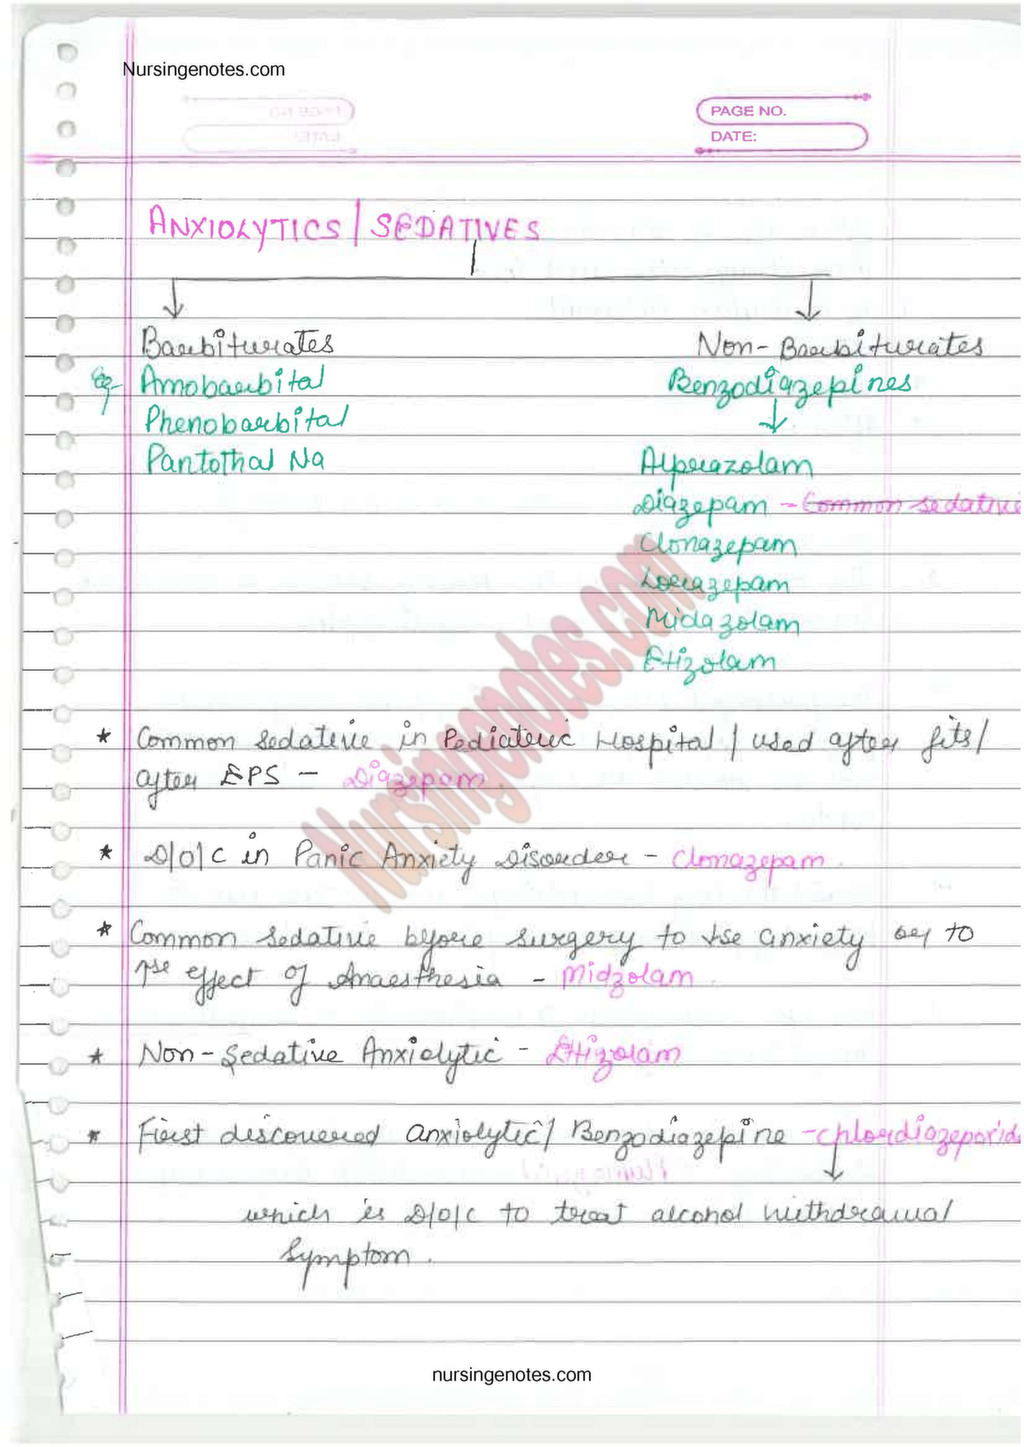 Nursingenotes.com
PAGE NO.
DATE:
ANXIOLYTICS / SEDATIVES
Barbiturates
Non-Barbiturates
Eg- Amobarbital
Benzodiazepines
Phenobarbital
Pantothal Na
Alprazolam
Diazepam - Common sedative
Clonazepam
Lorazepam
Midazolam
Etizolam
* Common Sedative in Pediatric Hospital / used after fits/
after EPS - Diazepam
* D/O/C in Panic Anxiety Disorder - Clonazepam.
* Common Sedative before surgery to ↓se anxiety or to
↑se effect of Anaesthesia - Midzolam.
* Non-Sedative Anxiolytic - Etizolam
* First discovered anxiolytic/ Benzodiazepine - chlordiazepoxide
which is D/O/C to treat alcohol withdrawal
Symptom.
Nursingenotes.com
nursingenotes.com